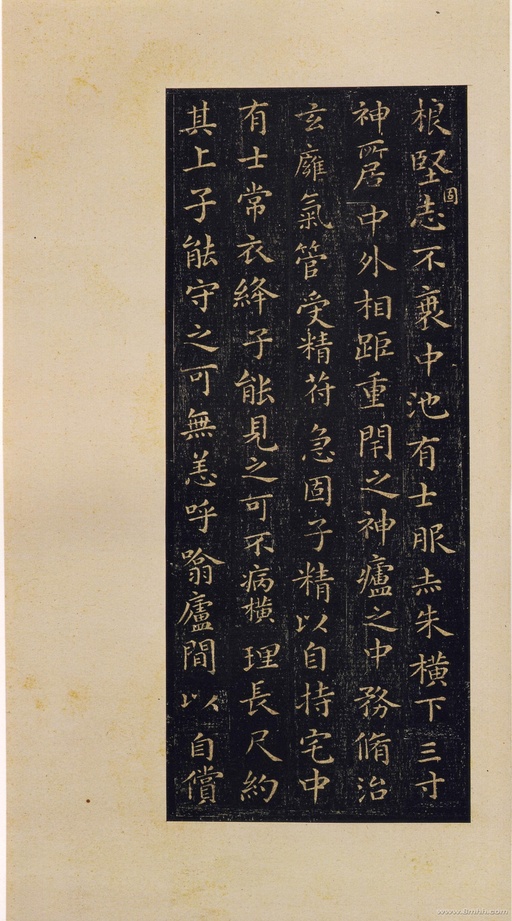 根堅固志不衰中池有士服赤朱橫下三寸
神所居中外相距重閇之神癰之中務脩治
玄廱氣管受精苻急固子精以自持宅中
有士常衣絳子能見之可不病橫理長尺約
其上子能守之可無恙呼噏廬間以自償
www.dmshn.com